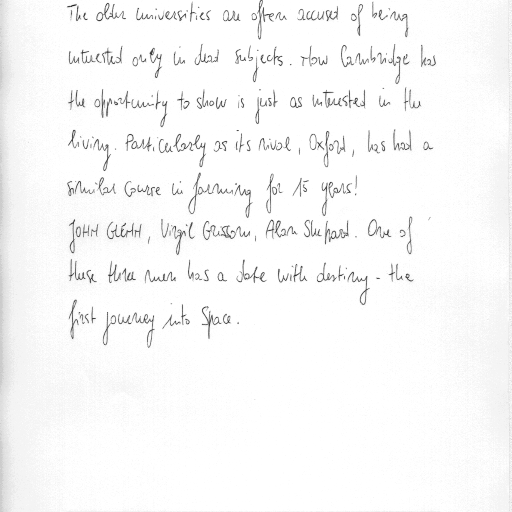 The older universities are often accused of being
interested only in dead subjects. How Cambridge has
the opportunity to show is just as interested in the
living. Particularly as its rival, Oxford, has had a
similar course in farming for 15 years!
JOHN GLENN, Virgil Grissom, Alan Shepard. One of
these three men has a date with destiny - the
first journey into Space.